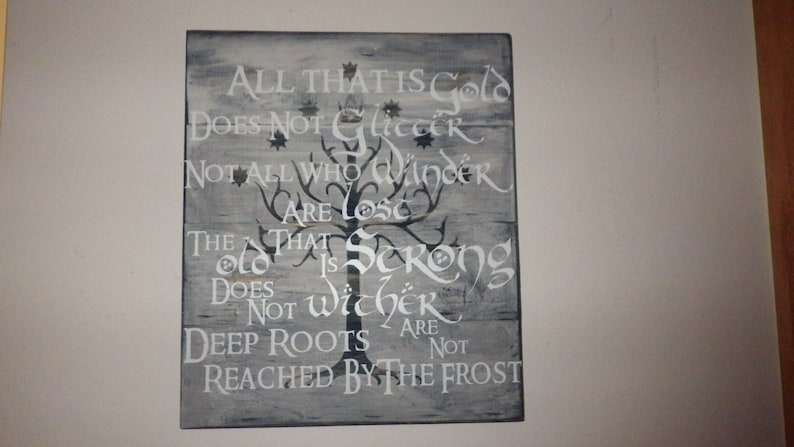 All that is Gold
Does Not Glitter
Not All Who Wander
Are Lost
The Old That Is Strong
Does Not Wither
Deep Roots Are Not
Reached By The Frost